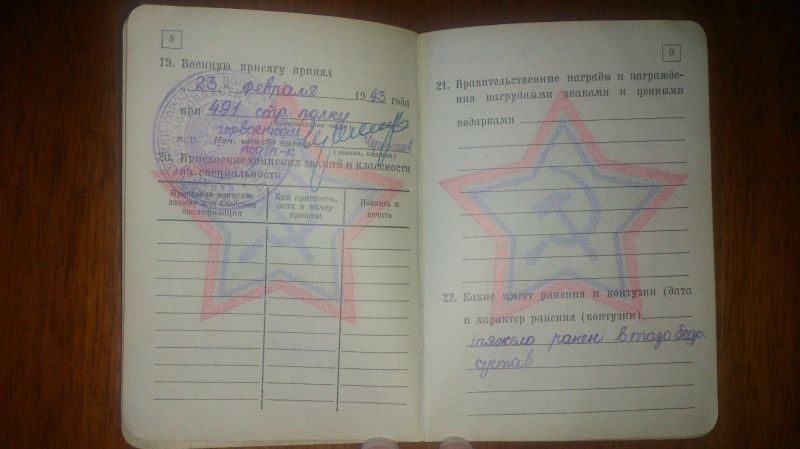 8
19. Военную присягу принял
„ 23 “ февраля 1943 года
при 491 стр полку
(наименование части)
горвоенком
м. п. Нач. штаба части
подп-к
(звание, подпись)
20. Присвоение воинских званий и классности
по специальности
Присвоено воинское звание или классная квалификация
Кем присвоено, дата и номер приказа
Подпись и печать
9
21. Правительственные награды и награжде-
ния нагрудными знаками и ценными
подарками
22. Какие имеет ранения и контузии (дата
и характер ранения (контузии)
тяжело ранен в тазобедр.
сустав